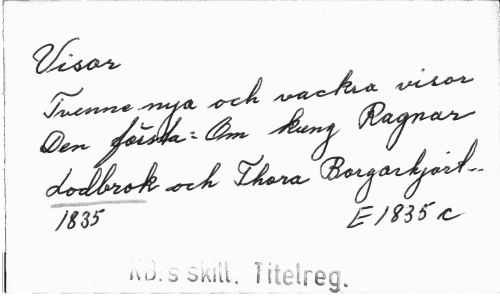 Visor
Tvenne nya och vackra visor
Den första: Om kung Ragnar
Lodbrok och Thora Borgarhjort..
1835 E 1835 c
KB:s skill. Titelreg.